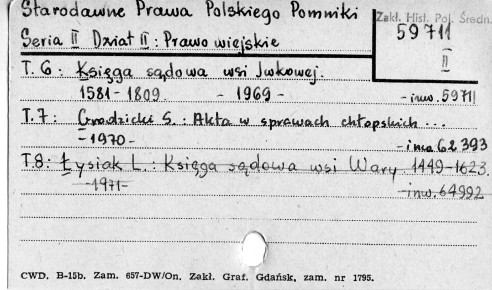 Starodawne Prawa Polskiego Pomniki
Zakł. Hist. Pol. Średn.
Seria II Dział II : Prawo wiejskie
59711
II
T. 6 : Księga sądowa wsi Iwkowej.
1581 - 1809 - 1969 - - inw. 59711
T. 7 : Grodzicki S. : Akta w sprawach chłopskich ...
- 1970 - - inw. 62393
T. 8 : Łysiak L. : Księga sądowa wsi Wary 1449-1623.
- 1971 - - inw. 64992
CWD. B-15b. Zam. 657-DW/On. Zakł. Graf. Gdańsk, zam. nr 1795.